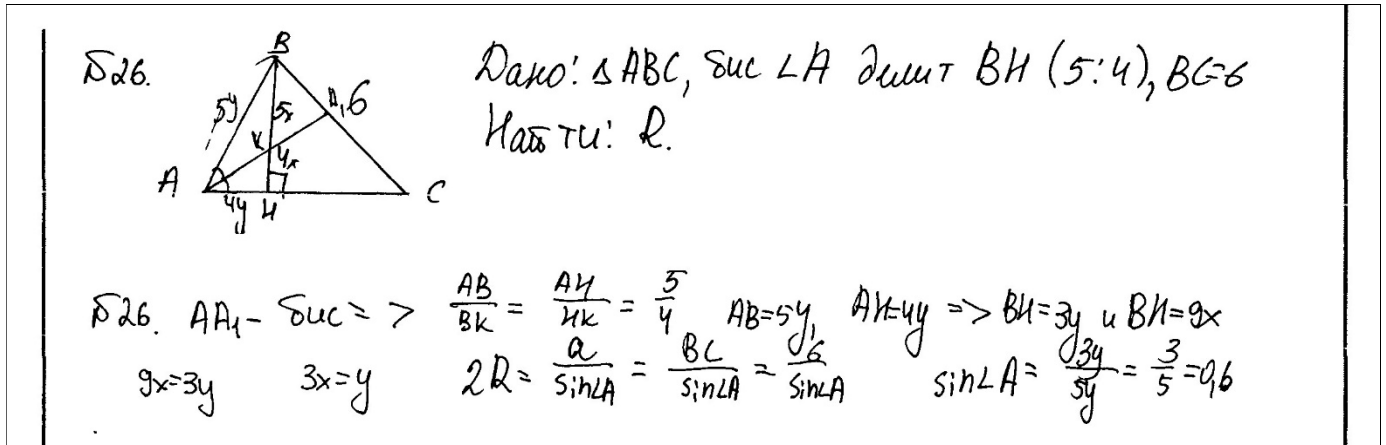 Б26.
B
5y
5x
A₁
6
K
4x
A
4y
H
C
Дано: ΔABC, бис ∠A делит BH (5:4), BC=6
Найти: R.
Б26. AA₁ – бис => AB/BK = AH/HK = 5/4 AB=5y, AH=4y => BH=3y и BH=9x
9x=3y 3x=y 2R= a/sin∠A = BC/sin∠A = 6/sin∠A sin∠A= 3y/5y = 3/5 =0,6